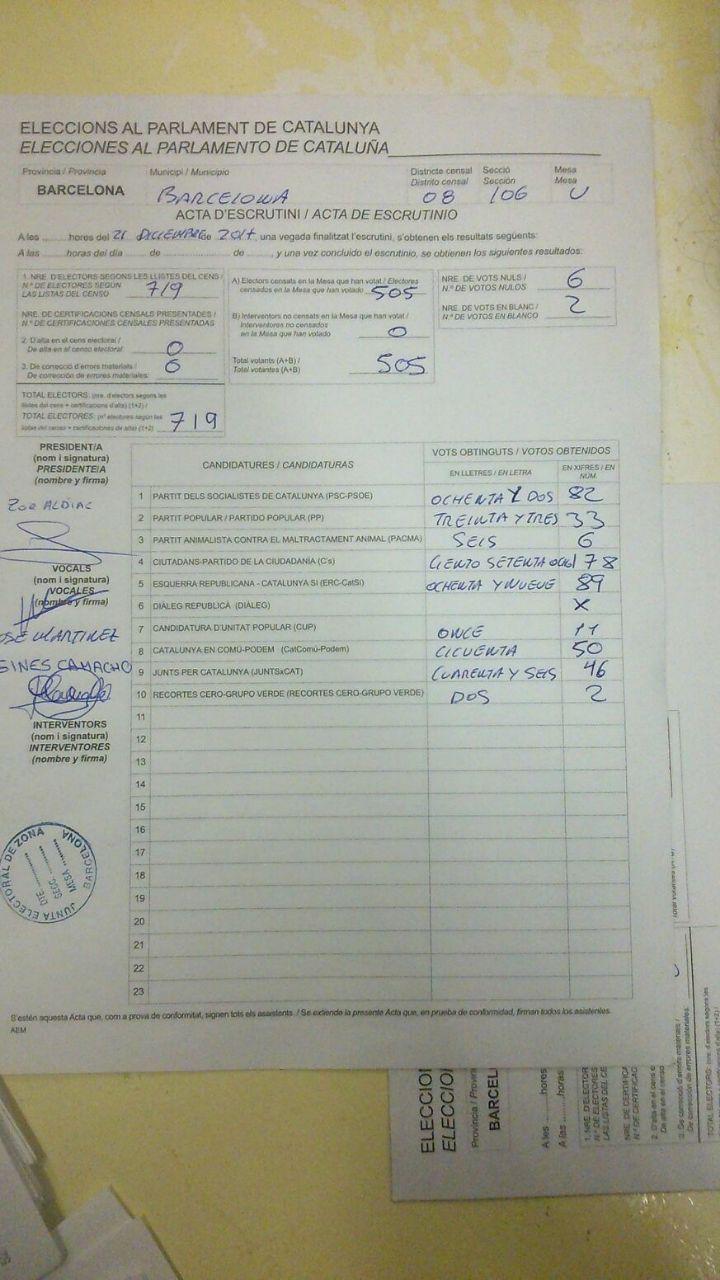 ELECCIONS AL PARLAMENT DE CATALUNYA
ELECCIONES AL PARLAMENTO DE CATALUÑA
Provincia / Provincia
BARCELONA
Municipi / Municipio
BARCELONA
Districte censal
Distrito censal
08
Secció
Sección
106
Mesa
Mesa
U
ACTA D'ESCRUTINI / ACTA DE ESCRUTINIO
A les ........ hores del 21 DICIEMBRE de 2017, una vegada finalitzat l'escrutini, s'obtenen els resultats següents:
A las ........ horas del día ........ de ........ de ........, y una vez concluido el escrutinio, se obtienen los siguientes resultados:
1. NRE. D'ELECTORS SEGONS LES LLISTES DEL CENS /
N.º DE ELECTORES SEGÚN
LAS LISTAS DEL CENSO
719
NRE. DE CERTIFICACIONS CENSALS PRESENTADES /
N.º DE CERTIFICACIONES CENSALES PRESENTADAS
2. D'alta en el cens electoral /
De alta en el censo electoral
0
3. De correcció d'errors materials /
De corrección de errores materiales:
0
TOTAL ELECTORS: (nre. d'electors segons les
llistes del cens + certificacions d'alta) (1+2) /
TOTAL ELECTORES: (nº electores según las
listas del censo + certificaciones de alta) (1+2)
719
A) Electors censats en la Mesa que han votat / Electores
censados en la Mesa que han votado
505
B) Interventors no censats en la Mesa que han votat /
Interventores no censados
en la Mesa que han votado
0
Total votants (A+B) /
Total votantes (A+B)
505
NRE. DE VOTS NULS /
N.º DE VOTOS NULOS
6
NRE. DE VOTS EN BLANC /
N.º DE VOTOS EN BLANCO
2
PRESIDENT/A
(nom i signatura)
PRESIDENTE/A
(nombre y firma)
ZOE ALDIAC
VOCALS
(nom i signatura)
VOCALES
(nombre y firma)
OSÉ MARTINEZ
GINES CAMACHO
INTERVENTORS
(nom i signatura)
INTERVENTORES
(nombre y firma)
JUNTA ELECTORAL DE ZONA
BARCELONA
DTE.
SECC.
MESA
CANDIDATURES / CANDIDATURAS
VOTS OBTINGUTS / VOTOS OBTENIDOS
EN LLETRES / EN LETRA
EN XIFRES / EN NÚM.
1 PARTIT DELS SOCIALISTES DE CATALUNYA (PSC-PSOE) OCHENTA Y DOS 82
2 PARTIT POPULAR / PARTIDO POPULAR (PP) TREINTA Y TRES 33
3 PARTIT ANIMALISTA CONTRA EL MALTRACTAMENT ANIMAL (PACMA) SEIS 6
4 CIUTADANS-PARTIDO DE LA CIUDADANÍA (C's) CIENTO SETENTA OCHO 178
5 ESQUERRA REPUBLICANA - CATALUNYA SÍ (ERC-CatSí) OCHENTA Y NUEVE 89
6 DIÀLEG REPUBLICÀ (DIÀLEG) X
7 CANDIDATURA D'UNITAT POPULAR (CUP) ONCE 11
8 CATALUNYA EN COMÚ-PODEM (CatComú-Podem) CICUENTA 50
9 JUNTS PER CATALUNYA (JUNTSxCAT) CUARENTA Y SEIS 46
10 RECORTES CERO-GRUPO VERDE (RECORTES CERO-GRUPO VERDE) DOS 2
11
12
13
14
15
16
17
18
19
20
21
22
23
S'estén aquesta Acta que, com a prova de conformitat, signen tots els assistents. / Se extiende la presente Acta que, en prueba de conformidad, firman todos los asistentes.
AEM
ELECCION
ELECCION
Provincia / Provin
BARCEL
A les ........hores
A las ........horas
1. NRE. D'ELECTOR
N.º DE ELECTORES
LAS LISTAS DEL CE
NRE. DE CERTIFICA
N.º DE CERTIFICAC
2. D'alta en el cens e
De alta en el censo
3. De correcció d'errors materials /
De corrección de errores materiales:
TOTAL ELECTORS: (nre. d'electors segons les